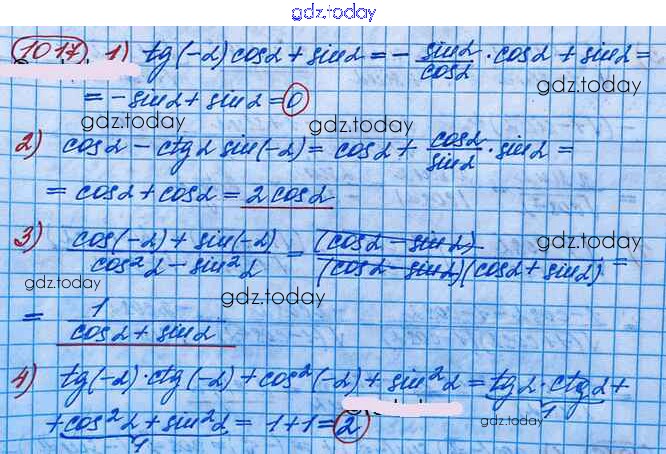 gdz.today
1017 1) tg(-α) cosα + sinα = - sinα/cosα · cosα + sinα =
gdz.today
= -sinα + sinα = 0
gdz.today gdz.today
2) cosα - ctgα sin(-α) = cosα + cosα/sinα · sinα =
= cosα + cosα = 2cosα
gdz.today
3) (cos(-α) + sin(-α))/(cos²α - sin²α) = (cosα - sinα)/((cosα - sinα)(cosα + sinα)) =
gdz.today
gdz.today
gdz.today
= 1/(cosα + sinα)
4) tg(-α) · ctg(-α) + cos²(-α) + sin²α = tgα · ctgα +
1
gdz.today gdz.today
+ cos²α + sin²α = 1 + 1 = 2
1